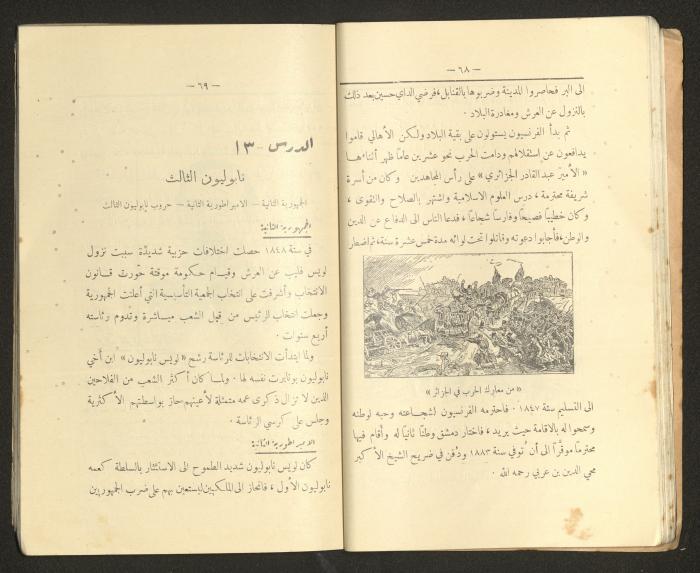 — ٦٨ —
الى البر فحاصروا المدينة وضربوها بالقنابل، فرضي الداي حسين بعد ذلك
بالنزول عن العرش ومغادرة البلاد .
ثم بدأ الفرنسيون يستولون على بقية البلاد ولكن الأهالي قاموا
يدافعون عن استقلالهم ودامت الحرب نحو عشرين عاماً ظهر أثناءها
« الأمير عبد القادر الجزائري » على رأس المجاهدين وكان من أسرة
شريفة محترمة ، درس العلوم الاسلامية واشتهر بالصلاح والتقوى ،
وكان خطيباً فصيحاً وفارساً شجاعاً ، فدعا الناس الى الدفاع عن الدين
والوطن ، فأجابوا دعوته وقاتلوا تحت لوائه مدة خمس عشرة سنة، ثم اضطر
« من معارك الحرب في الجزائر »
الى التسليم سنة ١٨٤٧ . فاحترمه الفرنسيون لشجاعته وحبه لوطنه
وسمحوا له بالاقامة حيث يريد ، فاختار دمشق وطناً ثانياً له وأقام فيها
محترماً موقّراً الى أن تُوفي سنة ١٨٨٣ ودُفن في ضريح الشيخ الأكبر
محي الدين بن عربي رحمه الله .
— ٦٩ —
الدرس - ١٣
نابوليون الثالث
الجمهورية الثانية — الامبراطورية الثانية — حروب نابوليون الثالث
الجمهورية الثانية
في سنة ١٨٤٨ حصلت اختلافات حزبية شديدة سببت نزول
لويس فليب عن العرش وقيام حكومة موقتة حوّرت قانون
الانتخاب وأشرفت على انتخاب الجمعية التأسيسية التي أعلنت الجمهورية
وجعلت انتخاب الرئيس من قبل الشعب مباشرة وتدوم رئاسته
أربع سنوات .
ولما ابتدأت الانتخابات للرئاسة رشح « لويس نابوليون » ابن أخي
نابوليون بونابرت نفسه لها . ولما كان أكثر الشعب من الفلاحين
الذين لا تزال ذكرى عمه متمثلة لأعينهم حاز بواسطتهم الأكثرية
وجلس على كرسي الرئاسة .
الامبراطورية الثانية
كان لويس نابوليون شديد الطموح الى الاستئثار بالسلطة كعمه
نابوليون الأول ، فانحاز الى الملكيين ليستعين بهم على ضرب الجمهوريين